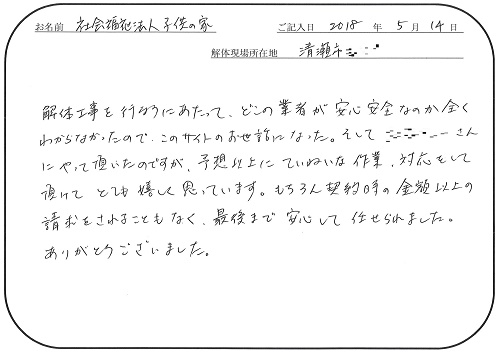 お名前 社会福祉法人子供の家 ご記入日 2018 年 5 月 14 日
解体現場所在地 清瀬市
解体工事を行なうにあたって、どこの業者が安心安全なのか全く
わからなかったので、このサイトのお世話になった。そして さん
にやって頂いたのですが、予想以上にていねいな作業、対応をして
頂けて とても嬉しく思っています。もちろん契約時の金額以上の
請求をされることもなく、最後まで安心して任せられました。
ありがとうございました。